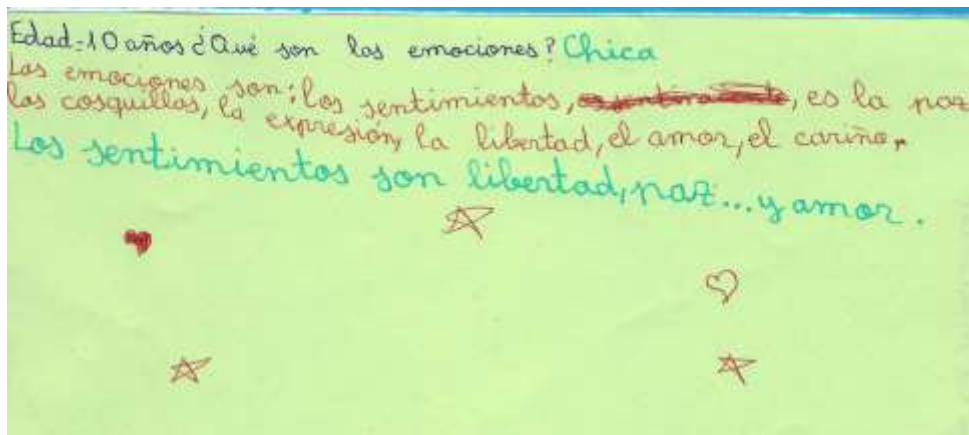 Edad: 10 años ¿Qué son las emociones? Chica
Las emociones son: los sentimientos, es la paz
las cosquillas, la expresión, la libertad, el amor, el cariño.
Los sentimientos son libertad, paz... y amor.